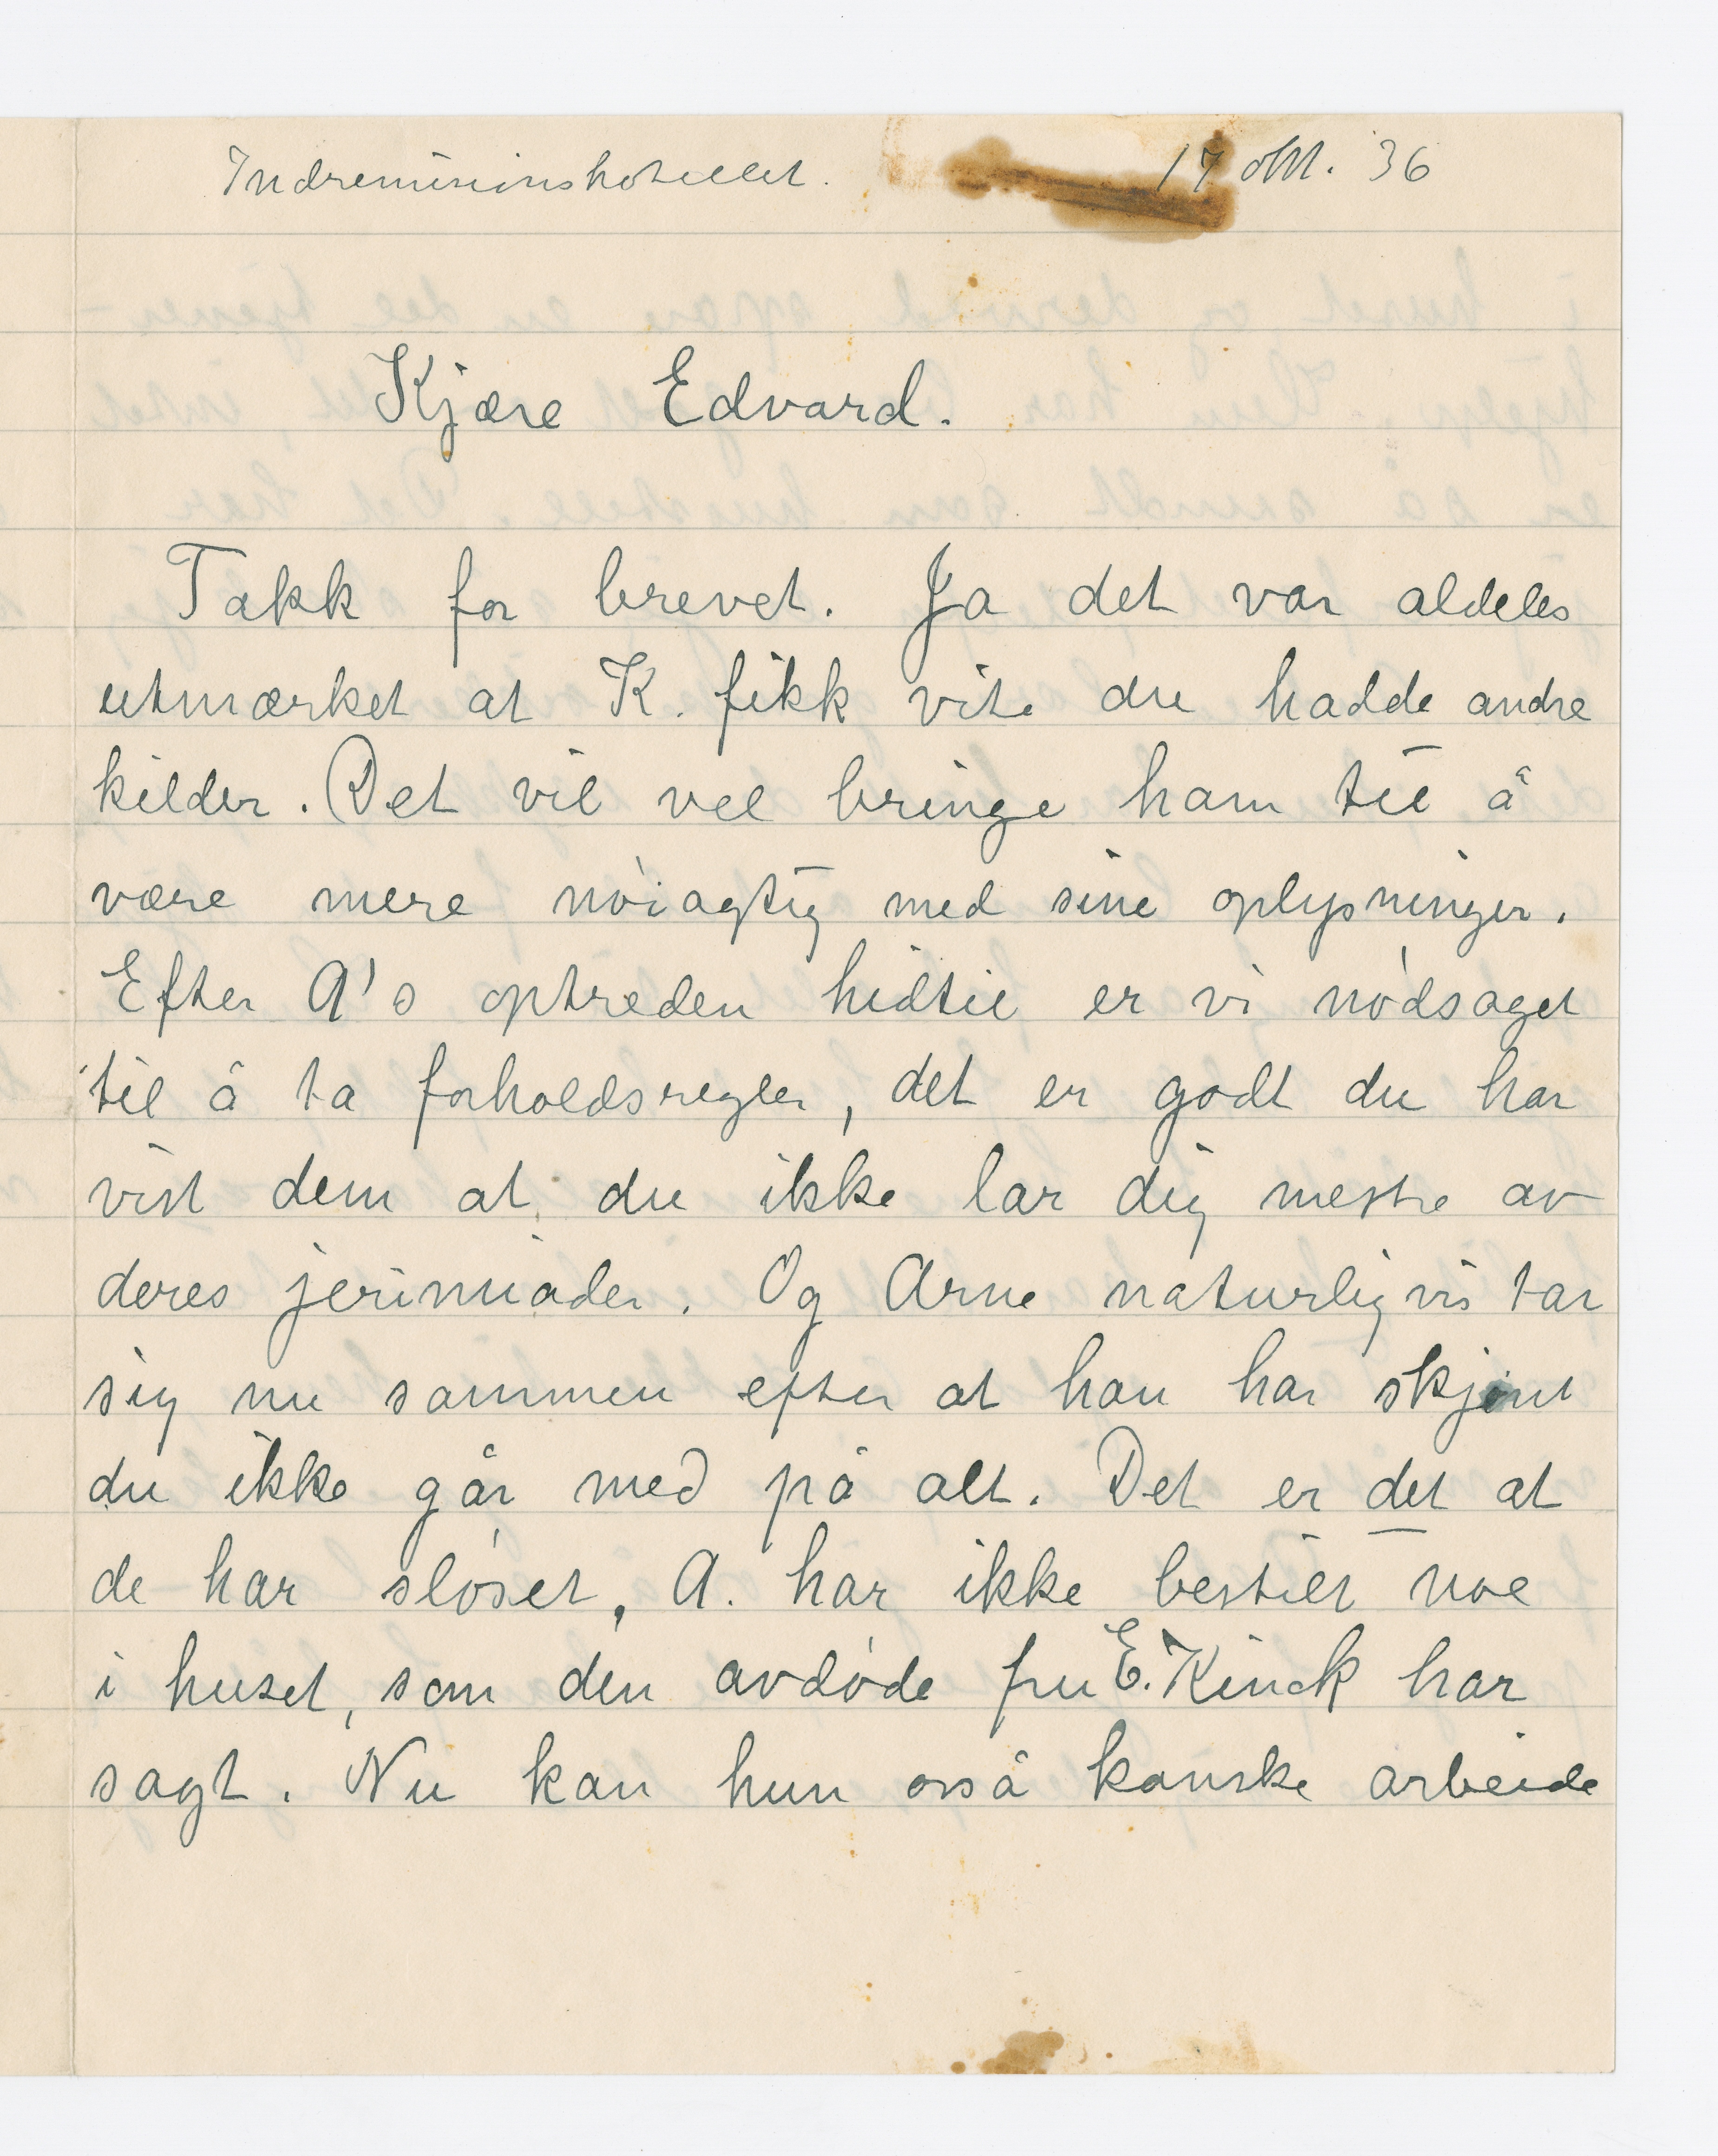 Indremisionshotellet. 17 okt. 36
Kjære Edvard.
Takk for brevet. Ja det var aldeles
utmærket at K. fikk vite du hadde andre
kilder. Det vil vel bringe ham til å
være mere nøiagtig med sine oplysninger.
Efter A's optreden hidtil er vi nødsaget
til å ta forholdsregler, det er godt du har
vist dem at du ikke lar dig mestre av
deres jerimiader. Og Arne naturligvis tar
sig nu sammen efter at han har skjønt
du ikke går med på alt. Det er det at
de har sløset, A. har ikke bestilt noe
i huset, som den avdøde fru E. Kinck har
sagt. Nu kan hun også kanske arbeide